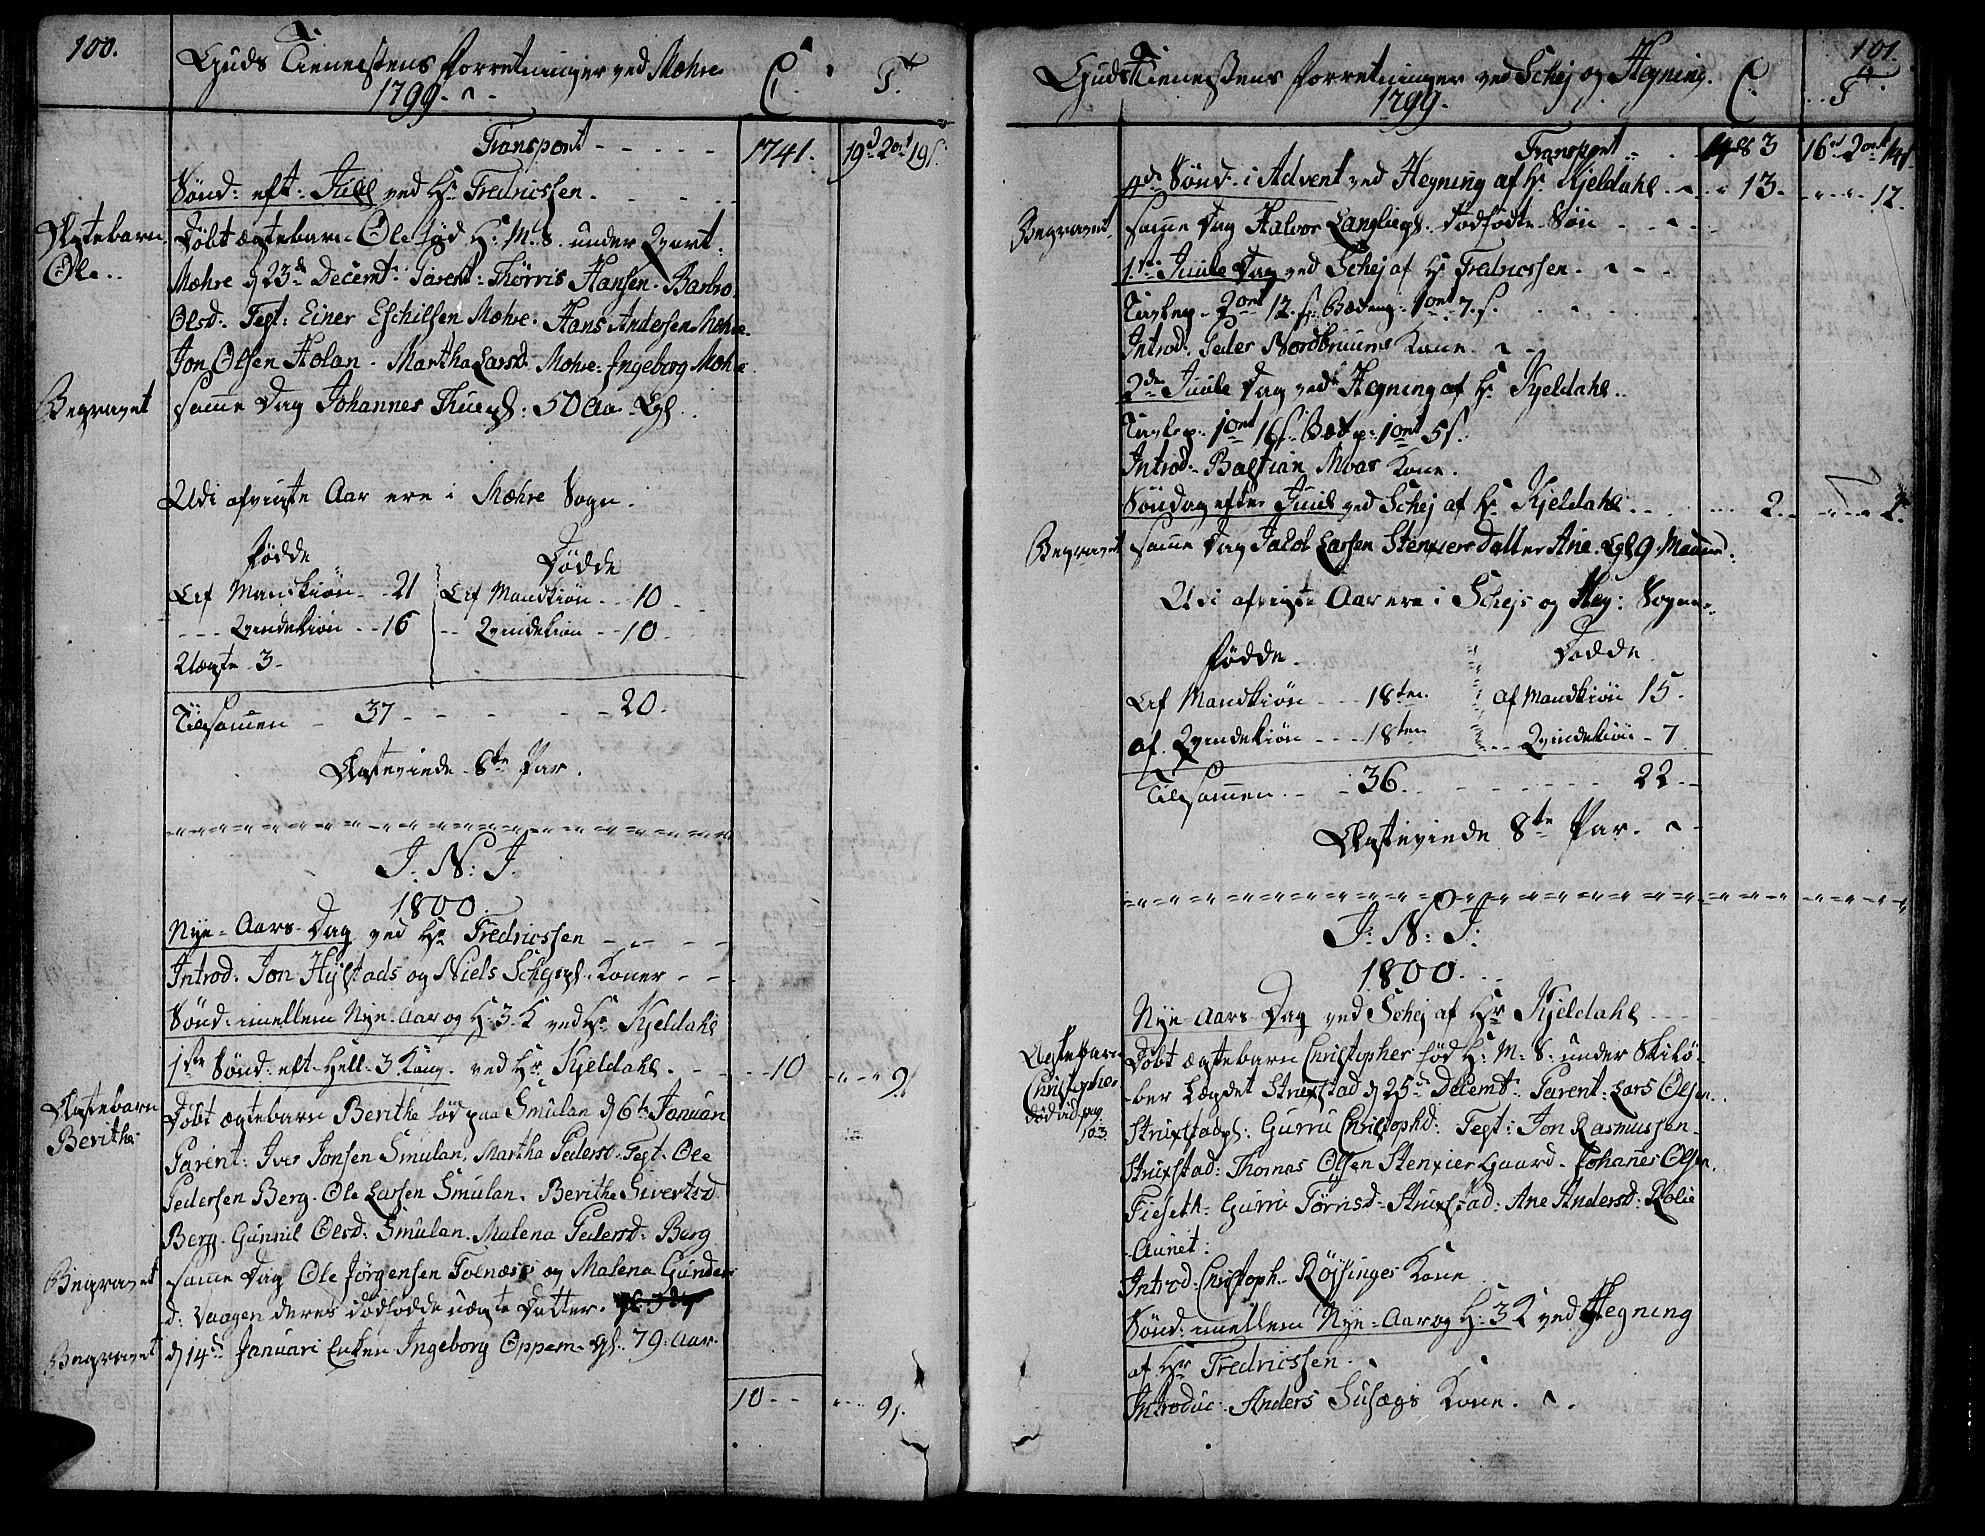 100.
Guds Tienestens Forretninger ved Mæhre
1799.
C. T.
Transport - - - - - 1741. 19d 2ort 19s.
Sønd: eft: Juul ved Hr. Fredricssen.
Ægtebarn Ole.
Døbt ægtebarn Ole fød H: M: S. under Qvart:
Mæhre d 23de Decembr: Parent: Thørris Hansen. Barbro
Olsd: Test: Einer Eschilsen Mæhre. Hans Andersen Mæhre
Jon Olsen Holan. Martha Larsd. Mæhre. Ingeborg Mæhre
Begravet
samme Dag Johannes 50 Aar
Udi afvigte Aar ere i Mæhre Sogn.
Fødde Dødde
Af Mandkiøn - - 21 Af Mandkiøn - - 10
- - - Qvindekiøn - - 16 - - Qvindekiøn - - 10
Uægte 3
Tilsammen - 37 - - - - - 20.
Ægteviede 8te Par.
J. N: J.
1800.
Nye-Aars-Dag ved Hr. Fredricssen - - - -
Introd. Jon Hystads og Niels Koner - -
Sønd: imellem Nye-Aar og H: 3 K ved Hr. Kjeldahl
1ste Sønd: eft: Hell: 3 Kong. ved Hr. Kjeldahl. - - - - 10 - - - 9s
Ægtebarn Berithe
Døbt ægtebarn Beritha fød paa Smulan d 6te Januari
Parent: Iver Jonsen Smulan. Martha Pedersd. Test. Ole
Pedersen Berg. Ole Larsen Smulan. Berithe Sivertsd
Berg. Gunnil Olsd: Smulan. Malena Pedersd: Berg
Begravet
samme Dag Ole Jørgensen Folnæss og Malena Gunders
d: Vaagen deres dødfødde uægte Datter.
Begravet
d 14de Januari Enken Ingeborg Oppem. gl. 79 Aar.
10 - - - - - 9s.
101.
Guds Tienestens Forretninger ved Schej og Hegning.
1799.
C. T.
Transport - - 83 16d 2ort 14s
4de Sønd: i Advent ved Hegning af Hr. Kjeldahl - - 13 - - - 12.
Begravet
samme Dag Halvor dødfødte Søn - - - -
1ste Juule Dag ved Schej af Hr. Fredricssen. - - -
2ort 12 s. 1ort 7 s.
Introd: Peder Nordbruuns Kone.
2den Juule Dag ved Hegning af Hr. Kjeldahl.
1ort 16s. 1ort 5s.
Introd. Bastian Moas Kone.
Søndag efter Juul ved Schej af Hr. Kjeldahl. - - - - 2. - - - 2.
Begravet
samme Dag Jacob Larsen Datter Ane. 9 Maaned:
Udi afvigte Aar ere i Schejs og Heg: Sogner.
Fødde. Dødde.
Af Mandkiøn - - - 18ten af Mandkiøn 15.
af Qvindekiøn - - - 18ten - - - Qvindekiøn - 7
Tilsammen - - - 36. - - - - - - 22 - -
Ægteviede 8te Par.
J: N: J:
1800.
Nye-Aars-Dag ved Schej af Hr. Kjeldahl - - - -
Ægtebarn Christopher død vid pag 103.
Døbt ægtebarn Christopher fød H: M: S: under Skilø-
ber Lægdet Struxstad d 25de Decembr: Parent: Lars Olsen
Gurru Christophd: Test: Jon Rasmussen
Struxstad: Thomas Olsen Stenxier Gaard. Johanes Olsen
Fieseth. Gurru Tørnsd. Struxstad: Ane Andersd: Rolie
Aunet:
Introd. Christoph. Røjsinges Kone
Sønd: imellem Nye-Aar og H: 3 K ved Hegning
af Hr. Fredricssen.
Introduc: Anders Susægs Kone.